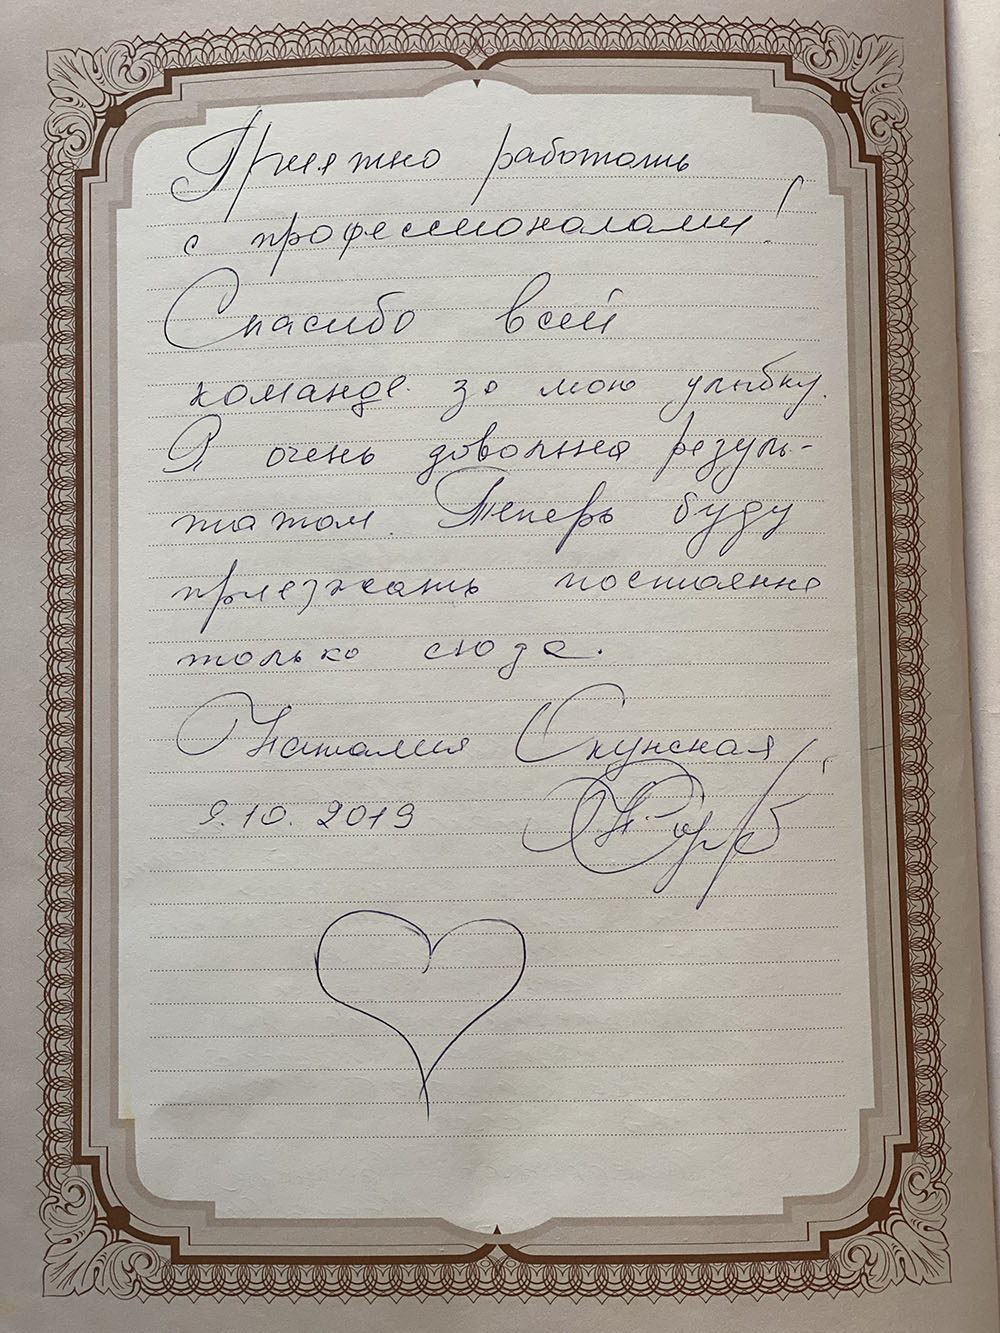 Приятно работать
с профессионалами!
Спасибо всей
команде за мою улыбку.
Я очень довольна резуль-
татом. Теперь буду
приезжать постоянно
только сюда.
Наталия Скунская
9.10.2019